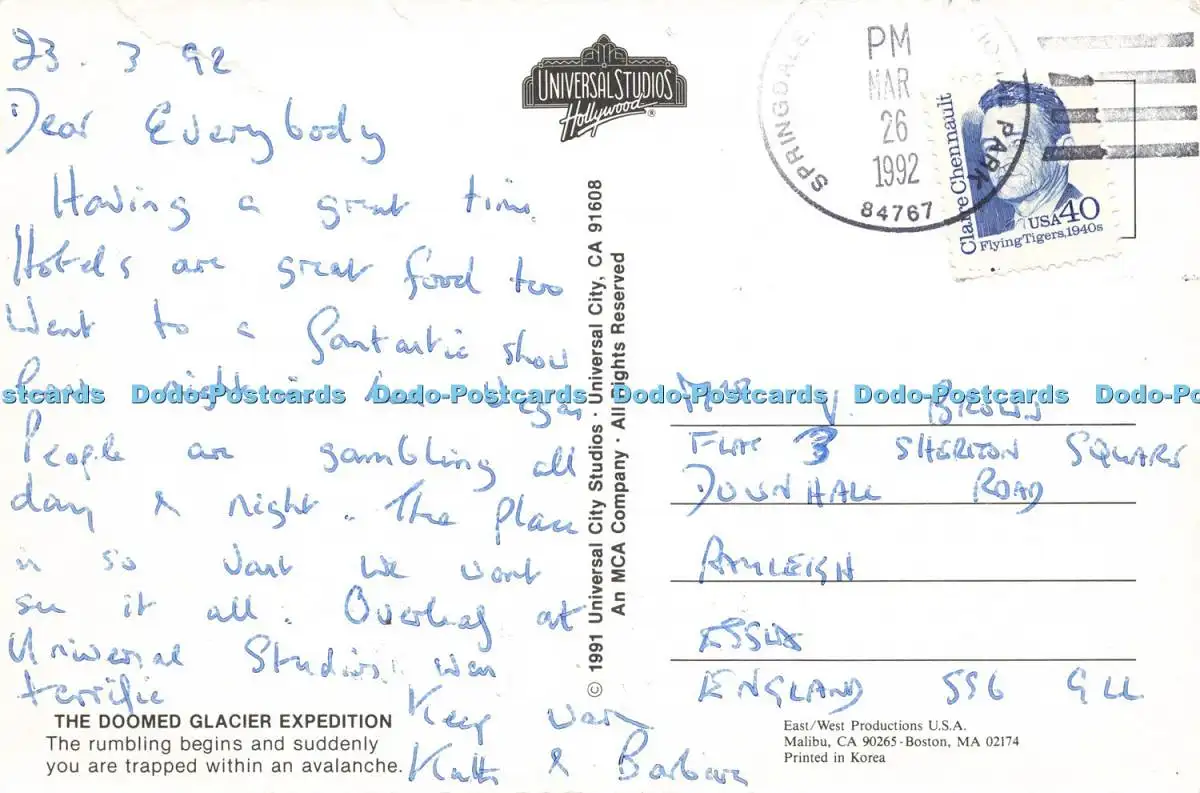 23. 3 92
Dear Everybody
Having a great time.
Hotels are great food too
Went to a fantastic show
night in
People are gambling all
day & night. The place
is so vast we wont
see it all. Overleaf at
Universal Studios. was
terrific
Keep warm
& Barbara
THE DOOMED GLACIER EXPEDITION
The rumbling begins and suddenly
you are trapped within an avalanche.
UNIVERSAL STUDIOS
Hollywood ®
© 1991 Universal City Studios · Universal City, CA 91608
An MCA Company · All Rights Reserved
SPRINGDALE PARK
PM
MAR
26
1992
84767
Claire Chennault
USA 40
Flying Tigers, 1940s
V. BROWN
FLAT 3 SHERITON SQUARE
DOWNHALL ROAD
RAYLEIGH
ESSEX
ENGLAND SS6 9LL
East/West Productions U.S.A.
Malibu, CA 90265-Boston, MA 02174
Printed in Korea
ostcards Dodo-Postcards Dodo-Postcards Dodo-Postcards Dodo-Postcards Dodo-Po